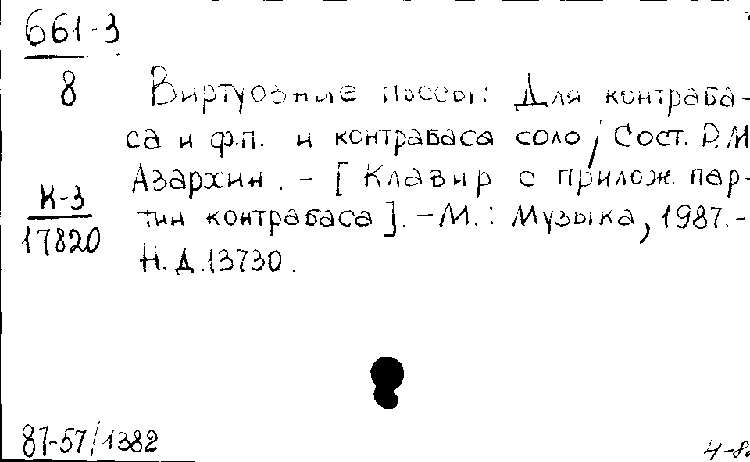 661-3
8
Виртуозные пьесы: Для контраба-
са и ф.п. и контрабаса соло; Сост. Р.М
Азархин. - [Клавир с прилож. пар-
тии контрабаса]. - М.: Музыка, 1987. -
Н.Д.13730.
К-3
17820
87-57/1382